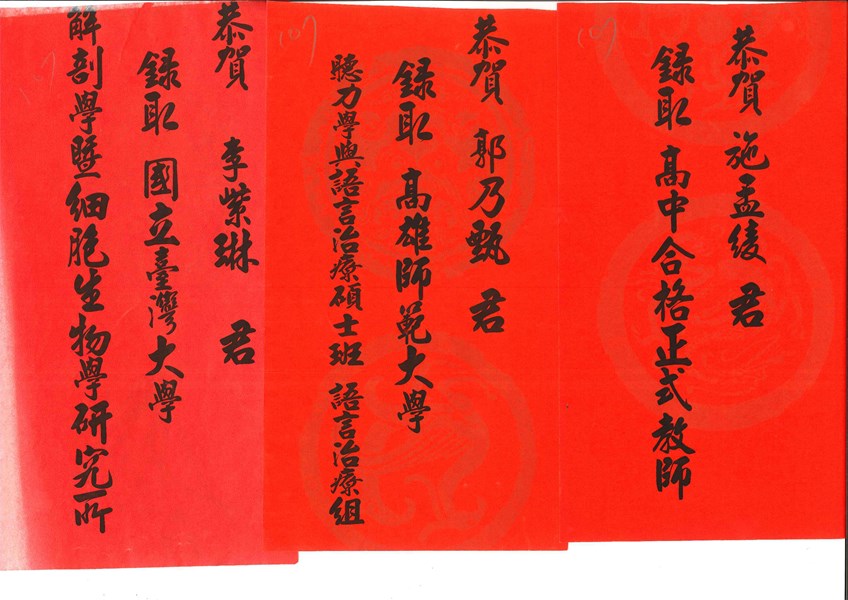 恭賀 施孟綾 君
錄取 高中合格正式教師
恭賀 郭乃甄 君
錄取 高雄師範大學
聽力學與語言治療碩士班 語言治療組
恭賀 李紫琳 君
錄取 國立臺灣大學
解剖學暨細胞生物學研究所